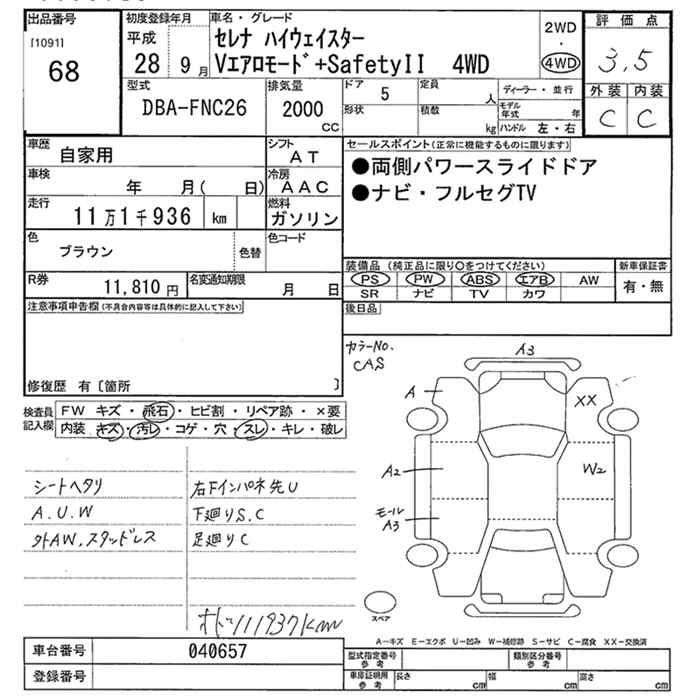 出品番号
[1091]
68
初度登録年月
平成
28 9月
車名・グレード
セレナ ハイウェイスター
Vエアロモード+SafetyII 4WD
2WD
・
4WD
評価点
3.5
外装 内装
C C
型式
DBA-FNC26
排気量
2000
CC
ドア 5
形状
定員
人
積数
kg
ディーラー・並行
モデル年式 年
ハンドル 左・右
車歴
自家用
シフト
AT
車検
年 月( 日)
冷房
AAC
走行
11万1千936 km
燃料
ガソリン
色
ブラウン
色替
色コード
R券
11,810 円
名変通知期限
月 日
セールスポイント(正常に機能するものに限ります)
●両側パワースライドドア
●ナビ・フルセグTV
装備品 (純正品に限り○をつけてください)
PS PW ABS エアB AW
SR ナビ TV カワ
新車保証書
有・無
後日品
注意事項申告欄(不具合内容等は具体的に記入して下さい)
修復歴 有〔箇所 〕
検査員記入欄
FW キズ・飛石・ヒビ割・リペア跡・×要
内装 キズ・汚レ・コゲ・穴・スレ・キレ・破レ
シートヘタリ
A.U.W
外AW.スタッドレス
右Fインパネ先U
下廻りS.C
足廻りC
オドツ111937km
カラーNo.
CAS
A3
A
XX
A2
W2
モール
A3
スペア
A-キズ E-エクボ U-凹み W-補修跡 S-サビ C-腐食 XX-交換済
車台番号
040657
登録番号
型式指定番号
参考
類別区分番号
参考
車庫証明用
参考
長さ cm
幅 cm
高さ cm